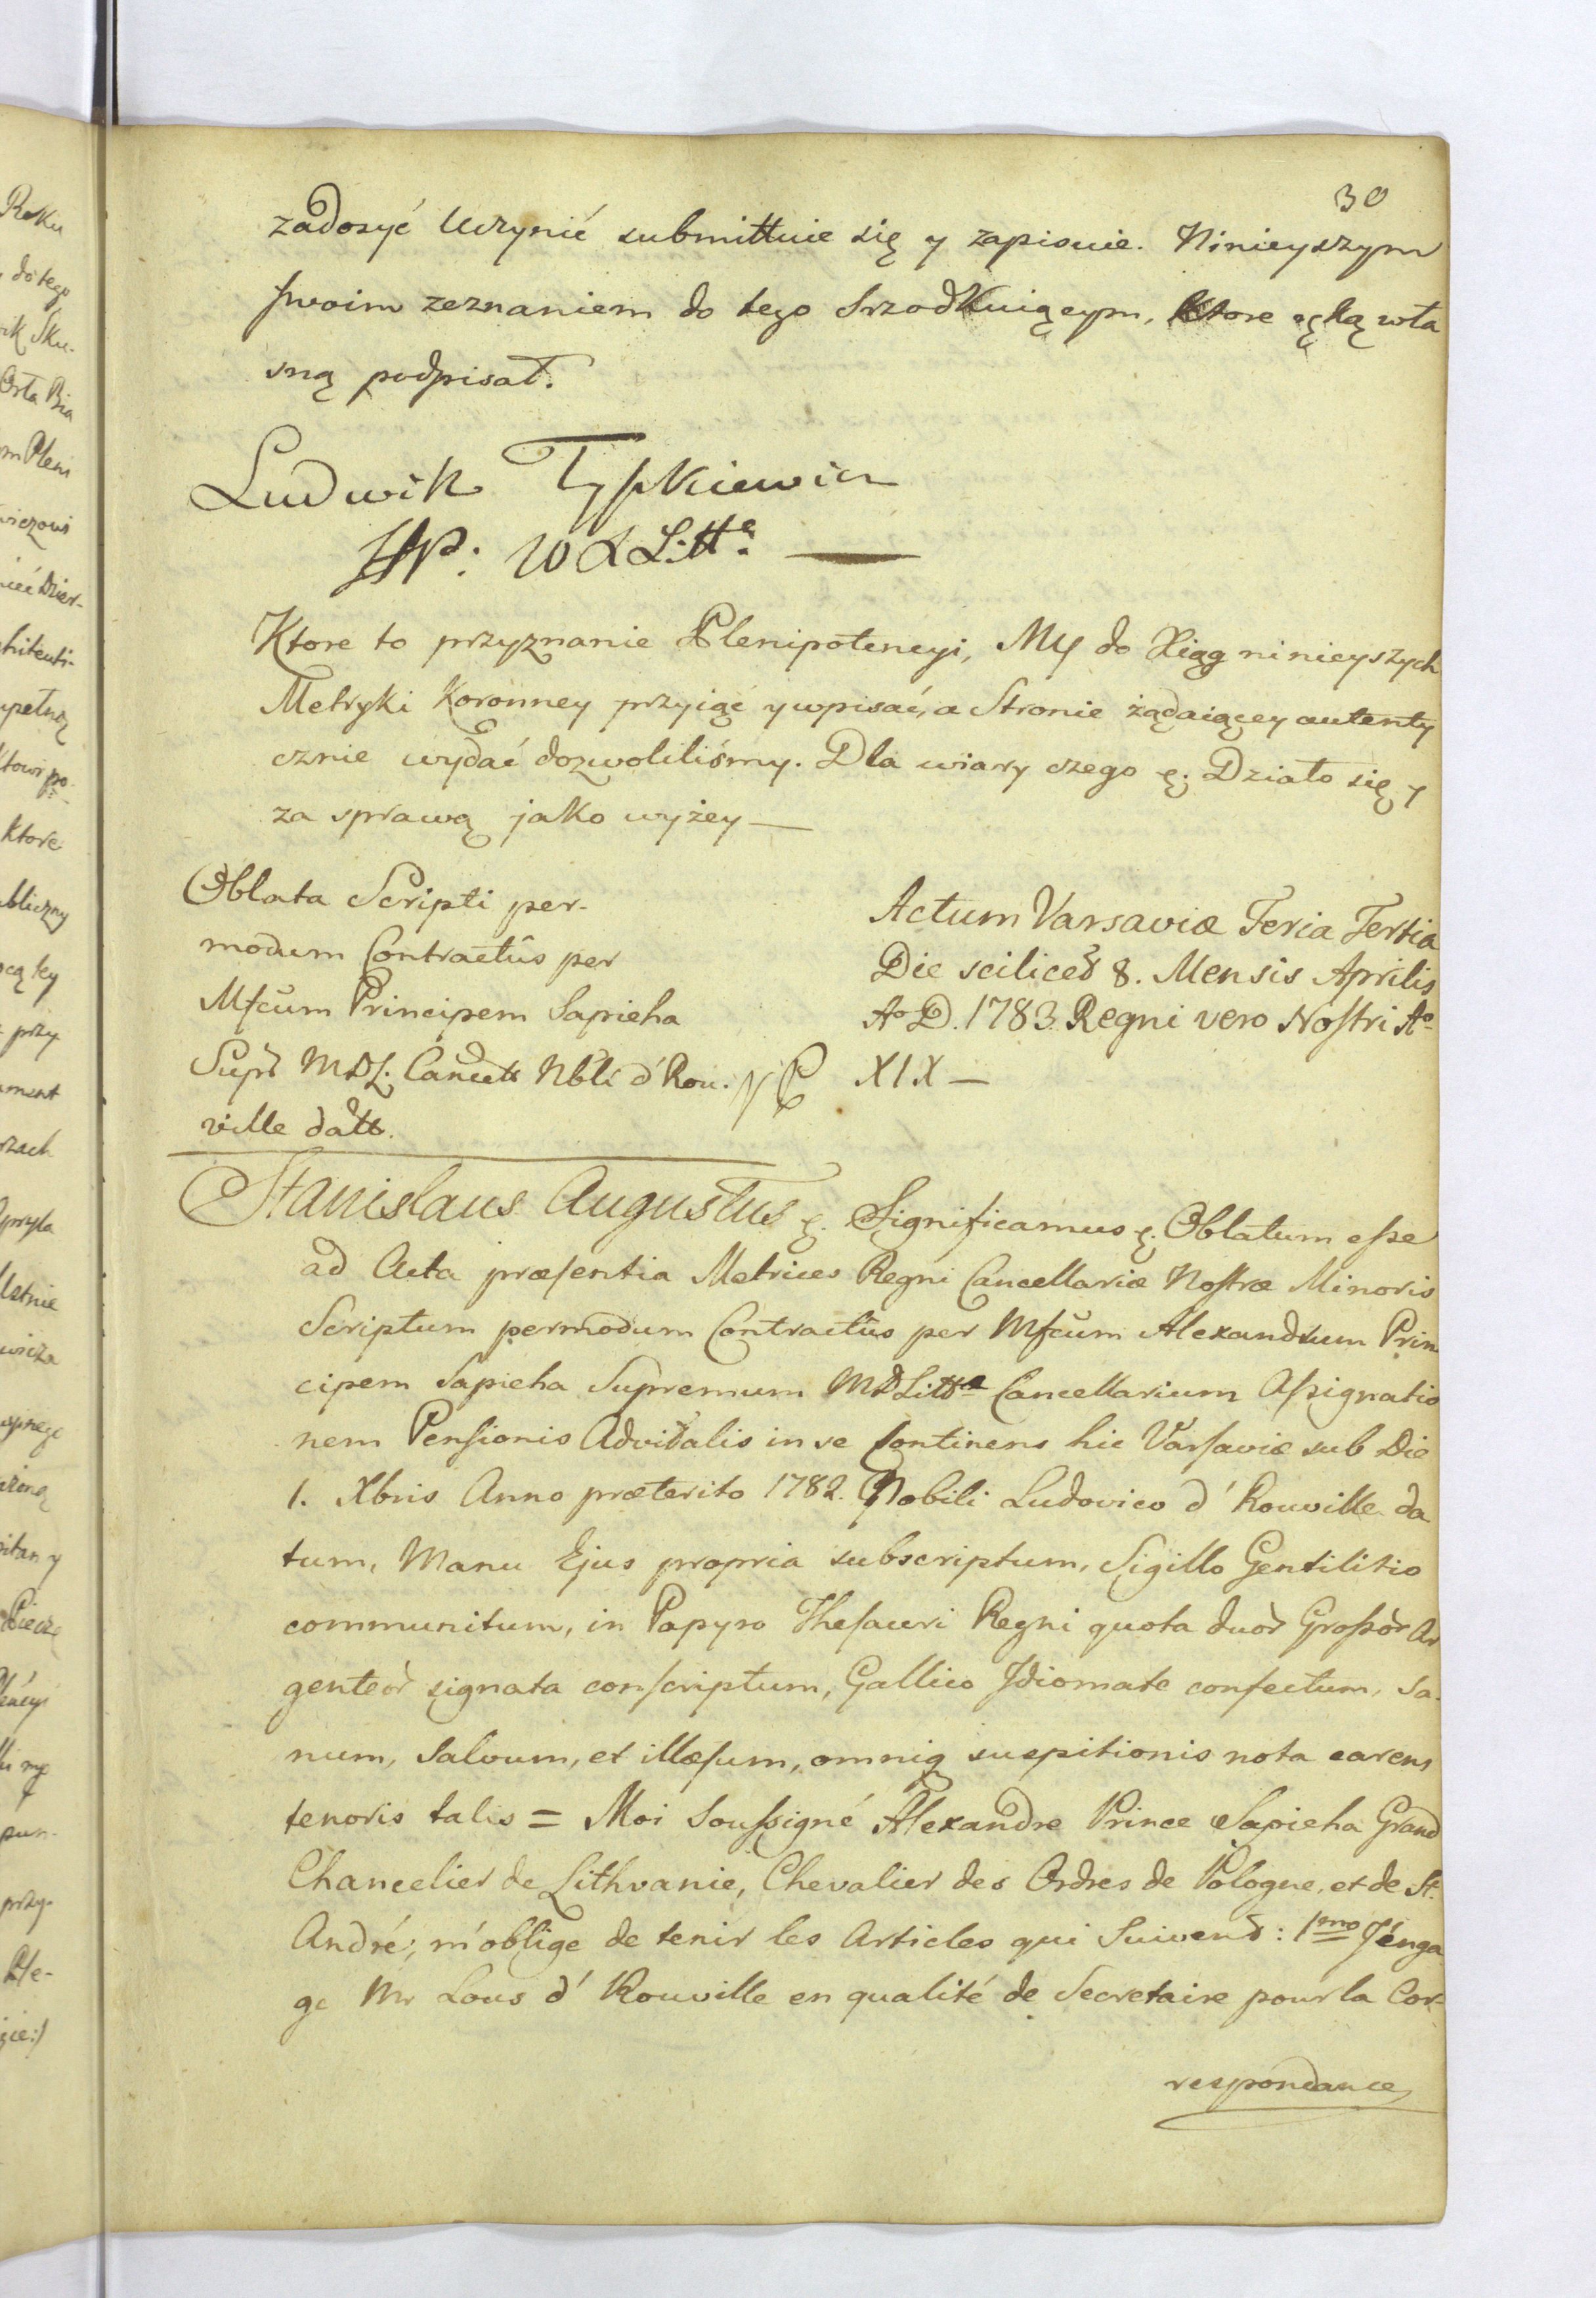 30
zadosyć Uczynić submittuie się y zapisuie. Ninieyszym
swoim zeznaniem do tego srzodkuiącym, Ktore ręką wła
sną podpisał.
Ludwik Tyszkiewicz
HP: W X Litt:
Ktore to przyznanie Plenipotencyi, MY do Xiąg ninieyszych
Metryki Koronney przyiąć y wpisać, a Stronie żądaiącey autenty
cznie wydać dozwoliliśmy. Dla wiary czego &. Działo się y
za sprawą jako wyżey —
Oblata Scripti per-
modum Contractûs per
Mfcum Principem Sapieha
Supr MDL: Cancell Nbli d'Rou.
ville datt.
Actum Varsaviæ Feria Tertia
Die scilicet 8. Mensis Aprilis
Ao D. 1783 Regni vero Nostri Ao
XIX —
Stanislaus Augustus &. Significamus &. Oblatum esse
ad Acta præsentia Metrices Regni Cancellariæ Nostræ Minoris
Scriptum permodum Contractûs per Mfcum Alexandrum Prin
cipem Sapieha Supremum MDLittæ Cancellarium Assignatio
nem Pensionis Advitalis in se Continens hic Varsaviæ sub Die
1. Xbris Anno præterito 1782. Nobili Ludovico d'Rouville da
tum, Manu Ejus propria subscriptum, Sigillo Gentilitio
communitum, in Papyro Thesauri Regni quota duor Grossor Ar
genteor signata conscriptum, Gallico Jdiomate confectum, sa-
num, salvum, et illæsum, omniq suspitionis nota carens
tenoris talis = Moi Soussigné Alexandre Prince Sapieha Grand
Chancelier de Lithvanie, Chevalier des Ordres de Pologne, et de St.
André, m'oblige de tenir les Articles qui Suivent: 1mo J'enga
ge Mr Lous d'Rouville en qualité de Secretaire pour la Cor-
respondance